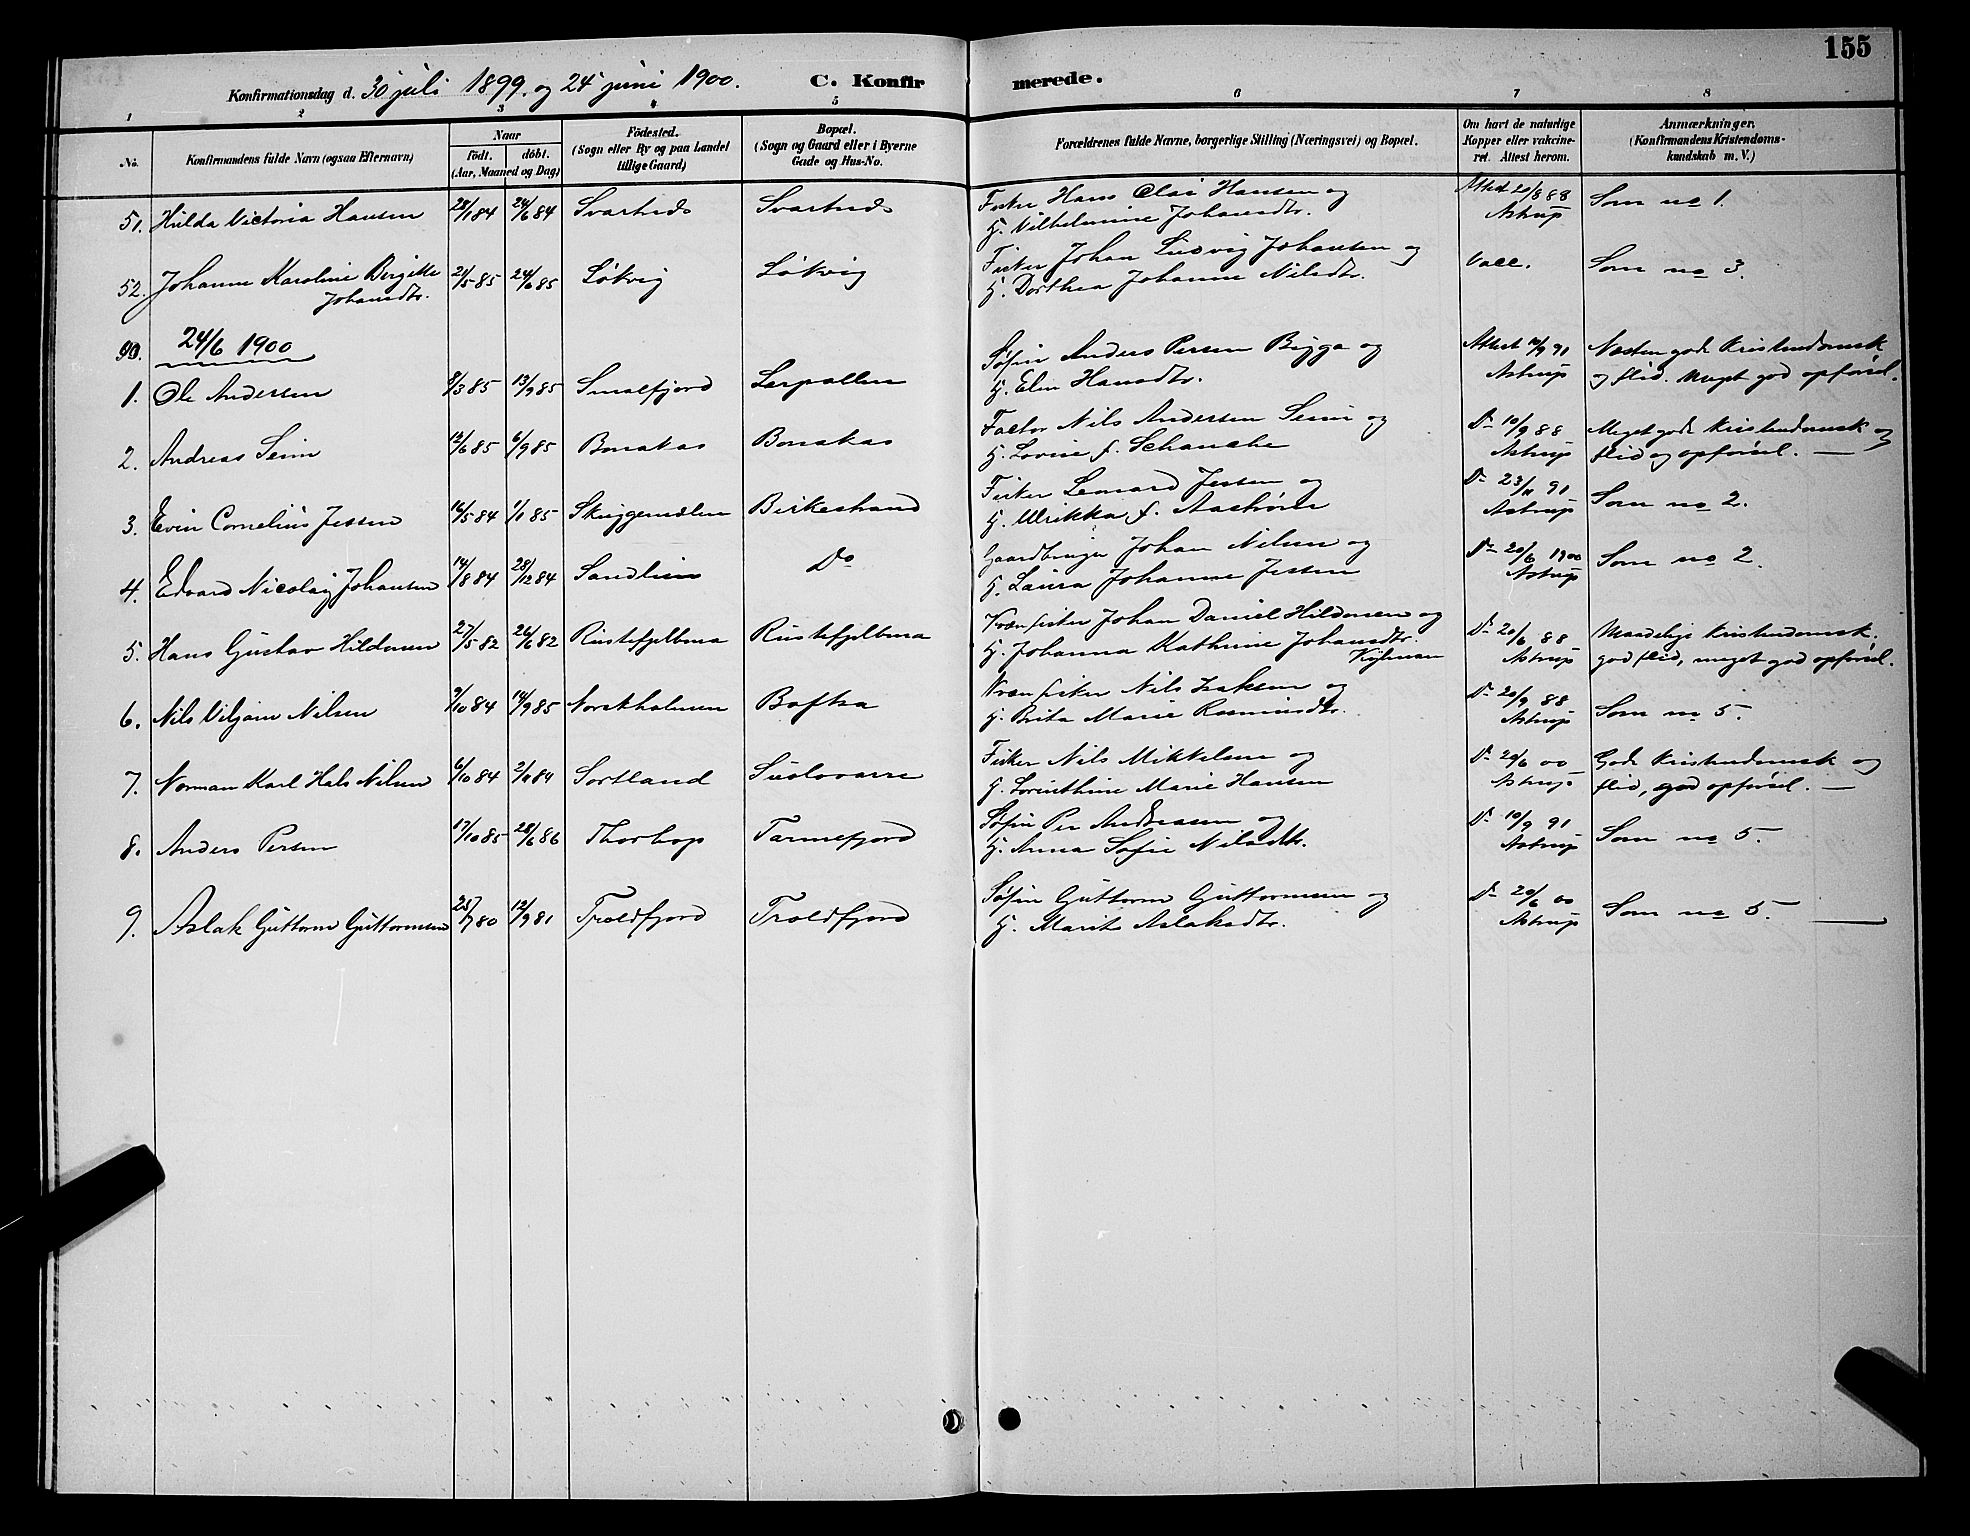 155
Konfirmationsdag d. 30 juli 1899. og 24 juni 1900. C. Konfirmerede.
1 2 3 4 5 6 7 8
No. Konfirmandens fulde Navn (ogsaa Efternavn) Naar födt. döbt. (Aar, Maaned og Dag) Födested. (Sogn eller By og paa Landet tillige Gaard) Bopæl. (Sogn og Gaard eller i Byerne Gade og Hus-No. Forældrenes fulde Navne, borgerlige Stilling (Næringsvei) og Bopæl. Om havt de naturlige Kopper eller vakcineret. Attest herom. Anmærkninger. (Konfirmandens Kristendomskundskab m. V.)
51. Hilda Victoria Hansen 28/1 84 24/6 84 Svartnæs Svartnæs Fisker Hans Olai Hansen og Attest 20/8 88 Som no 1.
H. Vilhelmine Johansdtr. Astrup
52. Johanne Karoline Bergitte 21/5 85 24/6 85 Løkvig Løkvig Fisker Johan Ludvig Johansen og Vacc. Som no 3.
Johansdtr. H. Dorthea Johanne Nilsdtr.
No. 24/6 1900
1. Ole Andersen 8/3 85 13/9 85 Smalfjord Lerpollen Søfin Anders Persen Bigga og Attest 10/9 91 Næsten god Kristendomsk
H. Elen Hansdtr. Astrup og flid. Meget god opførsel.
2. Andreas Seim 12/6 85 6/9 85 Bonakas Bonakas Factor Nils Andersen Seim og Do 10/9 88 Meget god Kristendomsk og
H. Lovise f. Schanche Astrup flid og opførsel. —
3. Evin Cornelius Jessen 16/5 84 1/1 85 Birkestrand Fisker Leonard Jessen og Do 23/11 91 Som no 2.
H. Ulrikka f. Aastrøm Astrup
4. Edvard Nicolay Johansen 14/8 84 28/12 84 Sandlien Do Gaardbruger Johan Nilsen og Do 20/6 1900 Som no 2.
H. Laura Johanne Jessen Astrup
5. Hans Gustav Hildonen 27/5 82 26/6 82 Rustefjelbma Rustefjelbma Kvæn fisker Johan Daniel Hildonen og Do 20/6 88 Maadelig Kristendomsk.
H. Johanna Kathrine Johansdtr. Astrup god flid, meget god opførsel.
6. Nils Viljam Nilsen 9/10 84 14/9 85 Norskholmen Boftsa Kvæn fisker Nils Isaksen og Do 20/9 88 Som no 5.
H. Brita Marie Rasmusdtr. Astrup
7. Norman Karl Hals Nilsen 6/10 84 Sortland Suolovarre Fisker Nils Mikkelsen og Do 20/6 00 God Kristendomsk og
H. Lorinthine Marie Hansen Astrup flid, god opførsel. —
8. Anders Persen 17/10 85 28/6 86 Thorhop Tarmefjord Søfin Per Andreasen og Do 10/9 91 Som no 5.
H. Anna Sofie Nilsdtr. Astrup
9. Aslak Guttorm Guttormsen 25/7 80 12/9 81 Troldfjord Troldfjord Søfin Guttorm Guttormsen og Do 20/6 00 Som no 5. —
H. Marit Aslaksdtr. Astrup